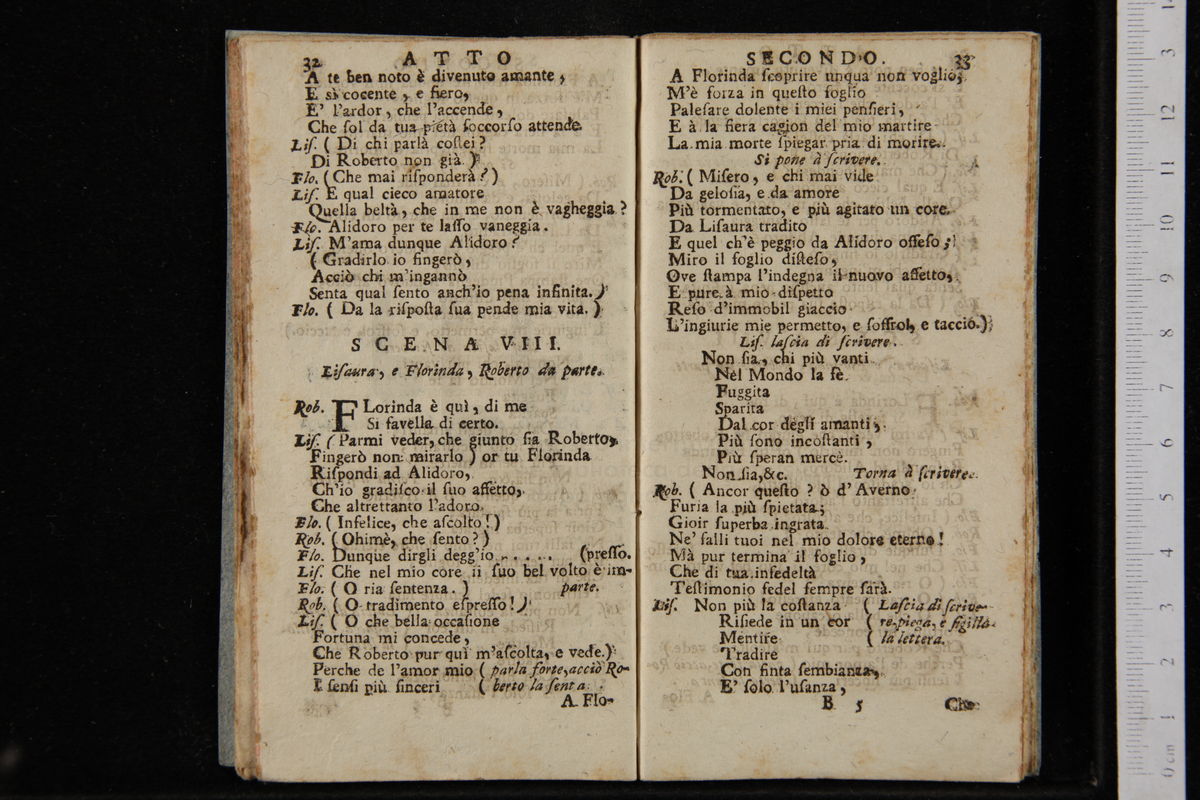 32 ATTO
A te ben noto è divenuto amante,
E sì cocente, e fiero,
E' l'ardor, che l'accende,
Che ſol da tua pietà ſoccorſo attende.
Liſ. ( Di chi parlà coſtei?
Di Roberto non già. )
Flo. ( Che mai riſponderà? )
Liſ. E qual cieco amatore
Quella beltà, che in me non è vagheggia?
Flo. Alidoro per te laſſo vaneggia.
Liſ. M'ama dunque Alidoro?
( Gradirlo io fingerò,
Acciò chi m'ingannò
Senta qual ſento anch'io pena infinita. )
Flo. ( Da la riſpoſta ſua pende mia vita. )
SCENA VIII.
Liſaura, e Florinda, Roberto da parte.
Rob. FLorinda è quì, di me
Si favella di certo.
Liſ. ( Parmi veder, che giunto ſia Roberto,
Fingerò non mirarlo ) or tu Florinda
Riſpondi ad Alidoro,
Ch'io gradiſco il ſuo affetto,
Che altrettanto l'adoro.
Flo. ( Infelice, che aſcolto! )
Rob. ( Ohimè, che ſento? )
Flo. Dunque dirgli degg'io ...... (preſſo.
Liſ. Che nel mio core il ſuo bel volto è im-
Flo. ( O ria ſentenza. ) parte.
Rob. ( O tradimento eſpreſſo! )
Liſ. ( O che bella occaſione
Fortuna mi concede,
Che Roberto pur quì m'aſcolta, e vede. )
Perche de l'amor mio ( parla forte, acciò Ro-
I ſenſi più ſinceri ( berto la ſenta.
A Flo-
SECONDO. 33
A Florinda ſcoprire unqua non voglio,
M'è forza in queſto foglio
Paleſare dolente i miei penſieri,
E à la fiera cagion del mio martire
La mia morte ſpiegar pria di morire.
Si pone à ſcrivere.
Rob. ( Miſero, e chi mai vide
Da geloſia, e da amore
Più tormentato, e più agitato un core.
Da Liſaura tradito
E quel ch'è peggio da Alidoro offeſo;
Miro il foglio diſteſo,
Ove ſtampa l'indegna il nuovo affetto,
E pure à mio diſpetto
Reſo d'immobil giaccio
L'ingiurie mie permetto, e ſoffrol, e taccio. )
Liſ. laſcia di ſcrivere.
Non ſia, chi più vanti
Nel Mondo la fè.
Fuggita
Sparita
Dal cor degli amanti,
Più ſono incoſtanti,
Più ſperan mercè.
Non ſia, &c. Torna à ſcrivere.
Rob. ( Ancor queſto? ò d'Averno
Furia la più ſpietata;
Gioir ſuperba ingrata
Ne' falli tuoi nel mio dolore eterno!
Mà pur termina il foglio,
Che di tua infedeltà
Teſtimonio fedel ſempre ſarà.
Liſ. Non più la coſtanza ( Laſcia di ſcrive-
Riſiede in un cor ( re, piega, e ſigilla
Mentire ( la lettera.
Tradire
Con finta ſembianza,
E' ſolo l'uſanza,
B 5 Che